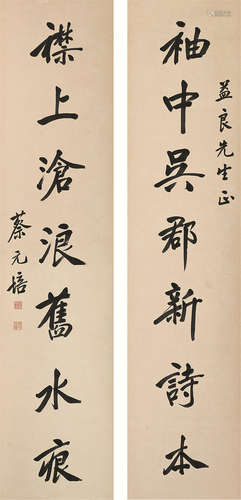 益良先生正
袖中吳郡新詩本
襟上滄浪舊水痕
蔡元培